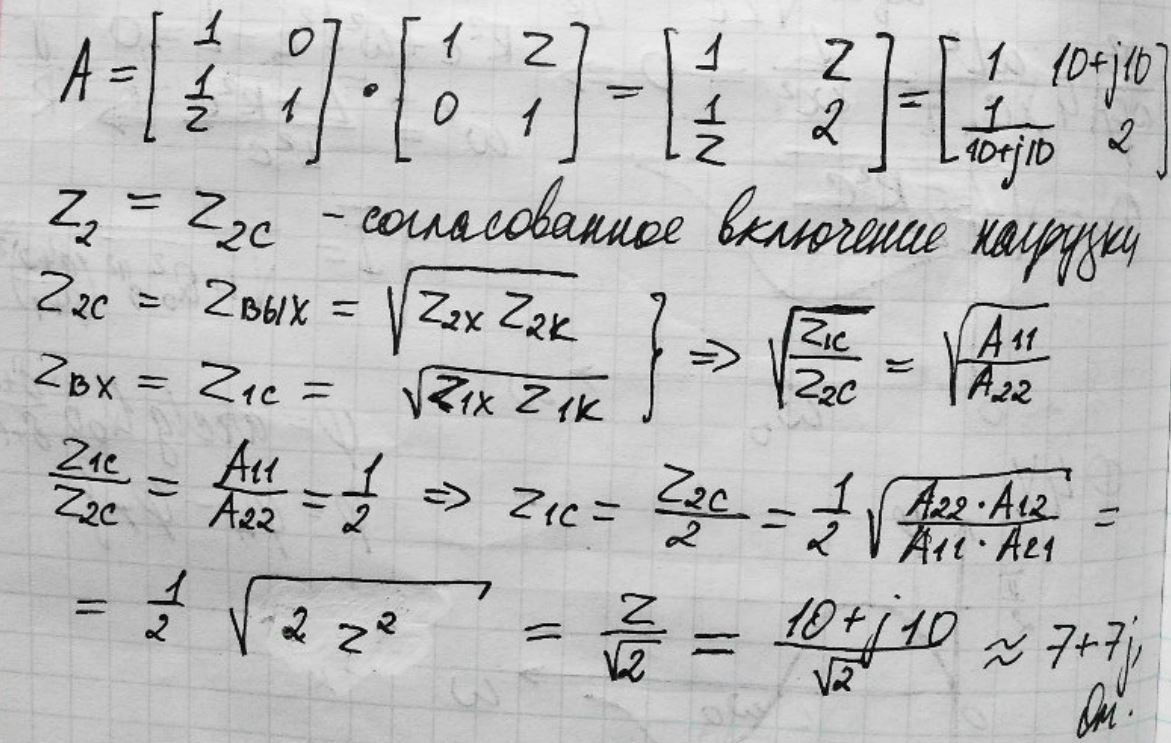 A = [1 0; 1/Z 1] · [1 Z; 0 1] = [1 Z; 1/Z 2] = [1 10+j10; 1/(10+j10) 2]
Z₂ = Z₂c - согласованное включение нагрузки
Z₂c = Zвых = √(Z₂x Z₂к)
Zвх = Z₁c = √(Z₁x Z₁к) } => √(Z₁c/Z₂c) = √(A₁₁/A₂₂)
Z₁c/Z₂c = A₁₁/A₂₂ = 1/2 => Z₁c = Z₂c/2 = 1/2 √((A₂₂·A₁₂)/(A₁₁·A₂₁)) =
= 1/2 √(2 Z²) = Z/√2 = (10+j10)/√2 ≈ 7+7j,
Ом.